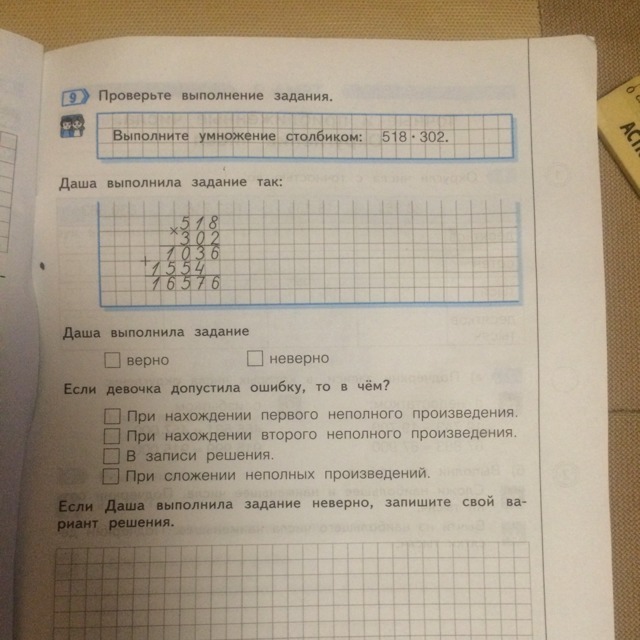 9 Проверьте выполнение задания.
Выполните умножение столбиком: 518 · 302.
Даша выполнила задание так:
× 518
302
+ 1036
1554
16576
Даша выполнила задание
верно неверно
Если девочка допустила ошибку, то в чём?
При нахождении первого неполного произведения.
При нахождении второго неполного произведения.
В записи решения.
При сложении неполных произведений.
Если Даша выполнила задание неверно, запишите свой ва-
риант решения.